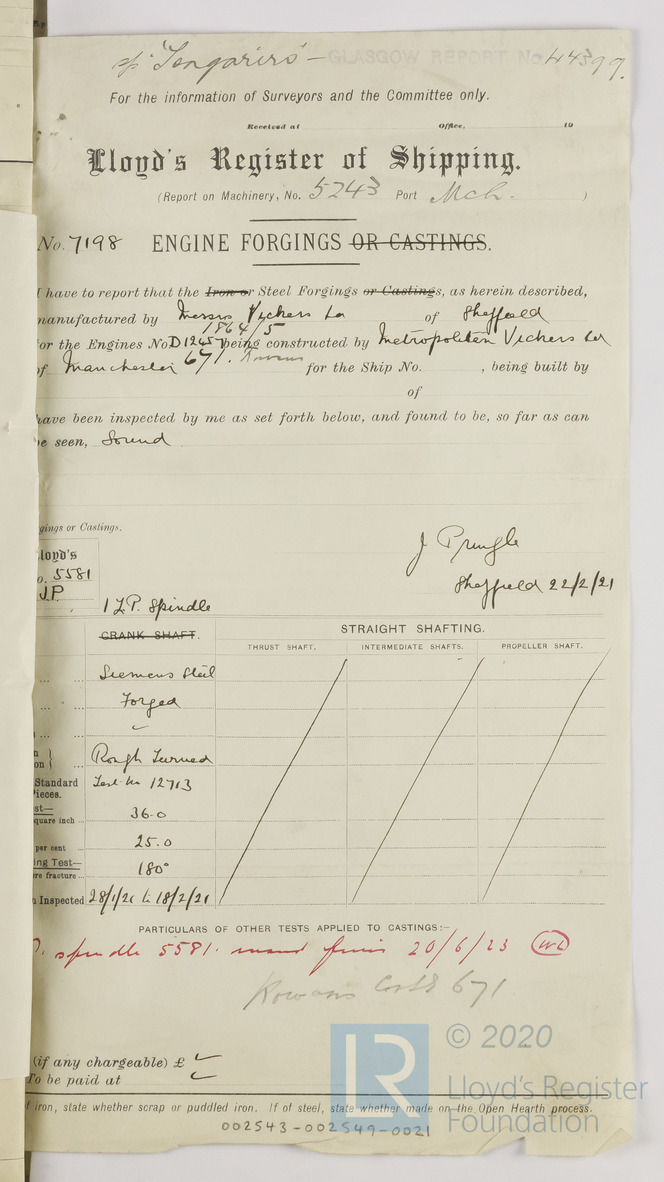 s/s "Tongariro" - GLASGOW REPORT No 44399.
For the information of Surveyors and the Committee only.
Received at Office, 19
Lloyd's Register of Shipping.
(Report on Machinery, No. 5243 Port Mch. )
No. 7198 ENGINE FORGINGS OR CASTINGS.
I have to report that the Iron or Steel Forgings or Castings, as herein described,
manufactured by Messrs Vickers Ld of Sheffield
1864/5
for the Engines No D1245 being constructed by Metropolitan Vickers Ld
of Manchester 671. Rowans for the Ship No. , being built by
of
have been inspected by me as set forth below, and found to be, so far as can
be seen, Sound
gings or Castings.
J Pringle
Sheffield 22/2/21
loyd's
o. 5581
J.P.
1 L.P. Spindle
CRANK SHAFT.
STRAIGHT SHAFTING.
THRUST SHAFT. INTERMEDIATE SHAFTS. PROPELLER SHAFT.
Siemens Steel
Forged
n
on } Rough Turned
Standard Test No 12713
ieces.
st—
quare inch 36.0
per cent 25.0
ing Test—
re fracture 180°
n Inspected 28/1/21 to 18/2/21
PARTICULARS OF OTHER TESTS APPLIED TO CASTINGS:—
P. spindle 5581. 20/6/23
Rowans 671
(if any chargeable) £
To be paid at
f iron, state whether scrap or puddled iron. If of steel, state whether made on the Open Hearth process.
002543-002549-0021
LR
© 2020
Lloyd's Register
Foundation